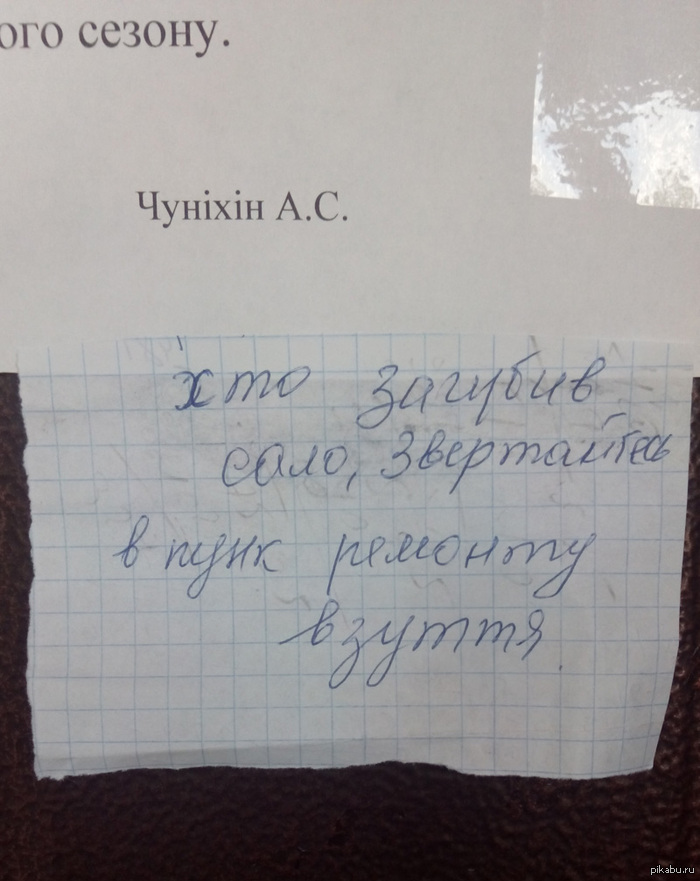 ого сезону.
Чуніхін А.С.
хто загубив
сало, звертайтесь
в пунк ремонту
взуття.
pikabu.ru